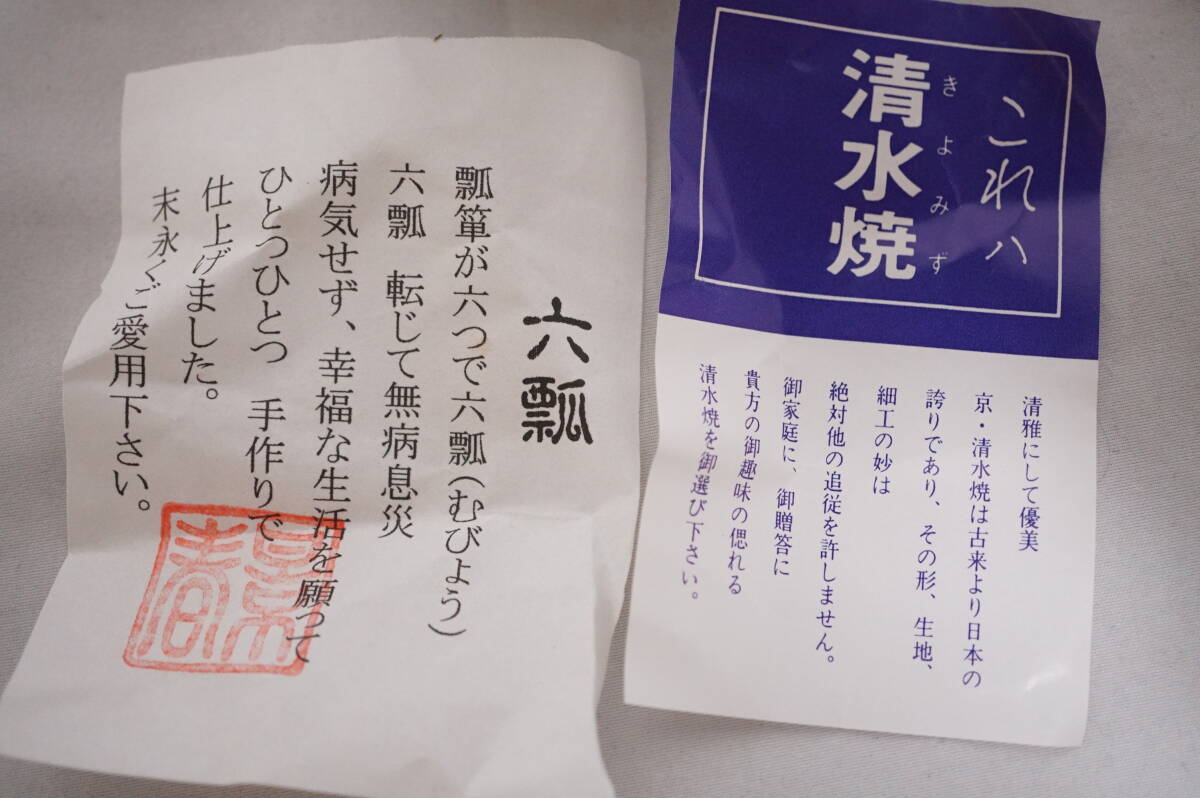 これハ
清水焼
きよみず
清雅にして優美
京・清水焼は古来より日本の
誇りであり、その形、生地、
細工の妙は
絶対他の追従を許しません。
御家庭に、御贈答に
貴方の御趣味の偲れる
清水焼を御選び下さい。
六瓢
瓢箪が六つで六瓢(むびょう)
六瓢 転じて無病息災
病気せず、幸福な生活を願って
ひとつひとつ 手作りで
仕上げました。
末永くご愛用下さい。